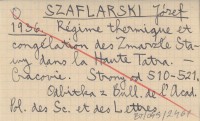 SZAFLARSKI Józef
1936. Régime thermique et
congélation des Zmarzłe Sta-
wy dans la Haute Tatra. —
Cracovie. Strony od 510-521.
Odbitka z Bull. de l'Acad.
Pol. des Sc. et des Lettres.